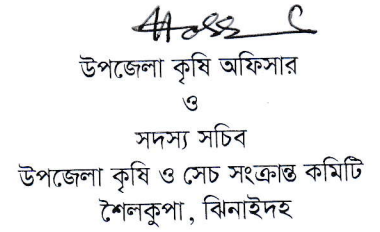 উপজেলা কৃষি অফিসার
ও
সদস্য সচিব
উপজেলা কৃষি ও সেচ সংক্রান্ত কমিটি
শৈলকুপা, ঝিনাইদহ